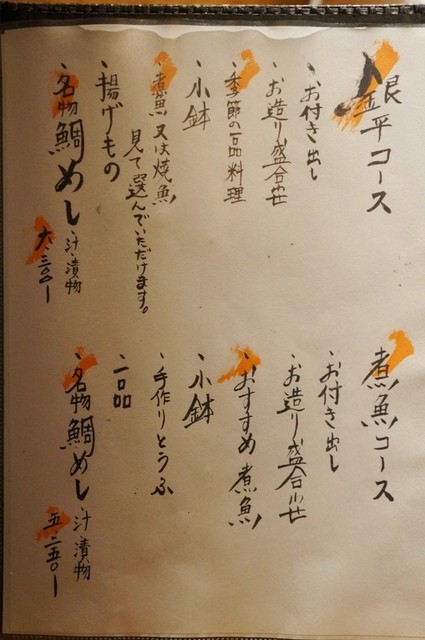 銀平コース
、お付き出し
、お造り盛合せ
、季節の一品料理
、小鉢
、煮魚又は焼魚
見て選んでいただけます。
、揚げもの
、名物鯛めし 汁、漬物
六、三〇〇ー
煮魚コース
、お付き出し
、お造り盛合せ
、おすすめ煮魚
、小鉢
、手作りとうふ
、一品
、名物鯛めし 汁 漬物
五、二五〇ー